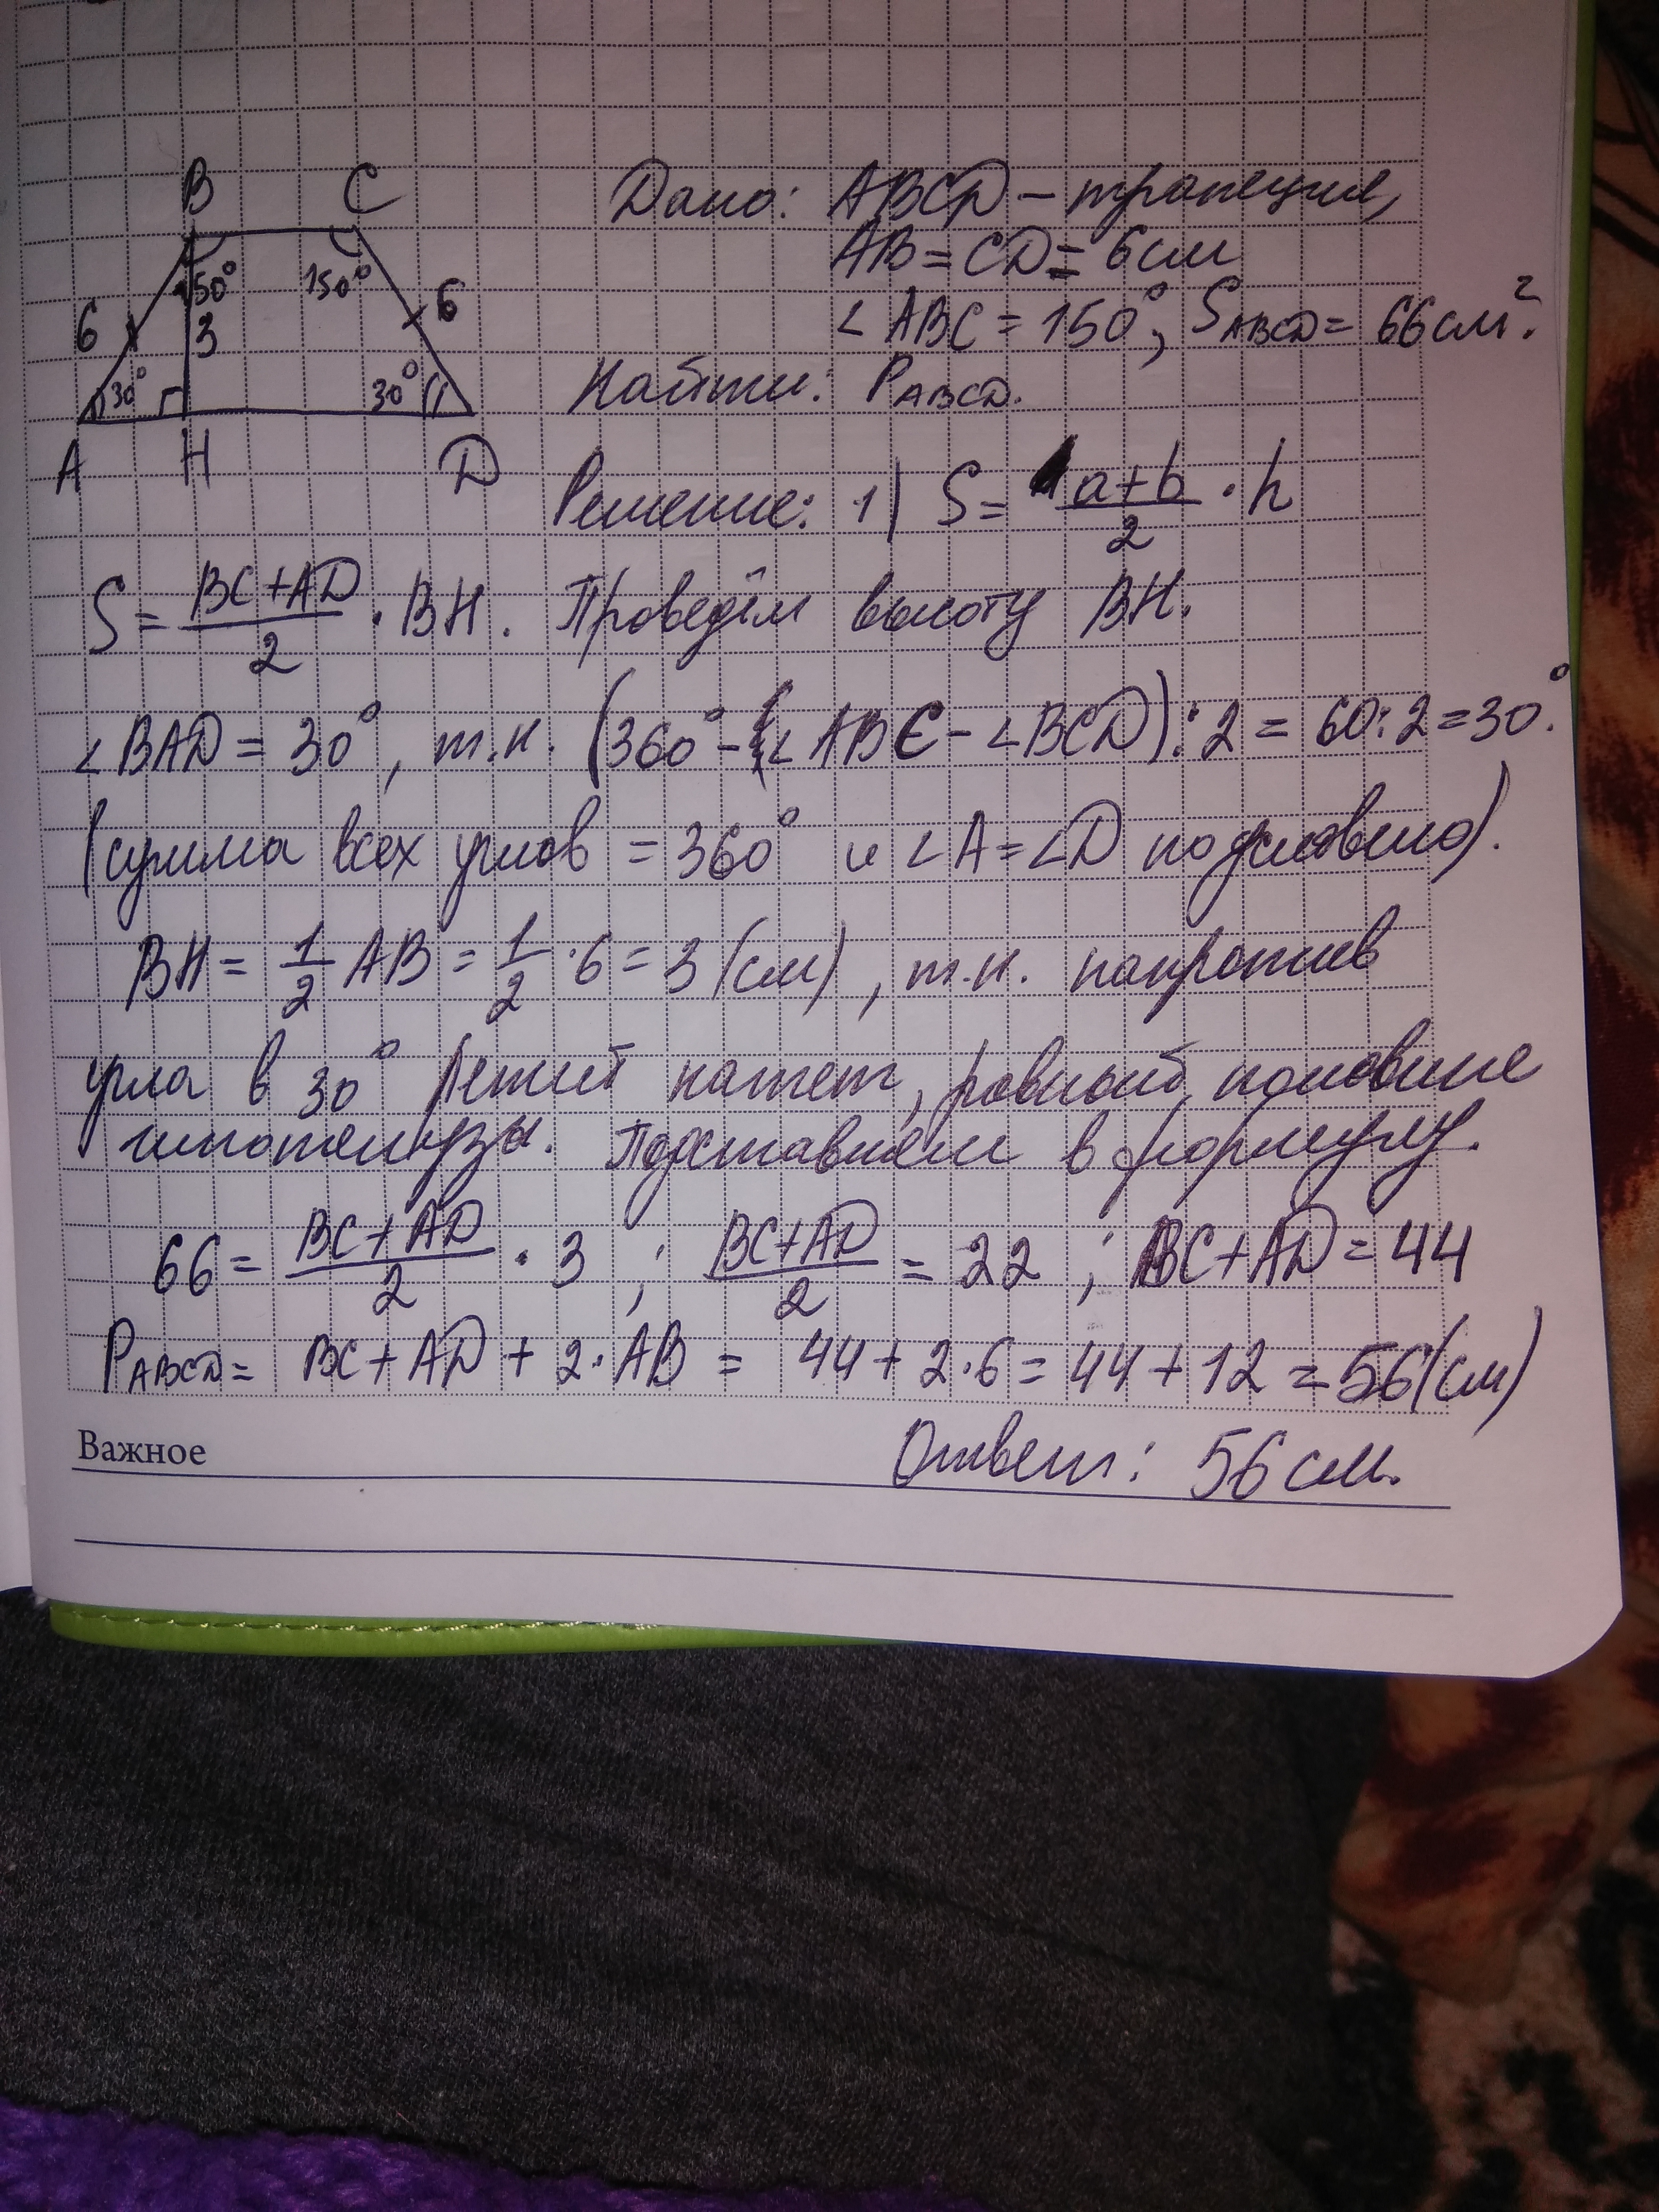 B C
150° 150°
6 3 6
30° 30°
A H D
Дано: ABCD – трапеция,
AB = CD = 6 см
∠ABC = 150°, S_ABCD = 66 см².
Найти: P_ABCD.
Решение: 1) S = (a+b)/2 · h
S = (BC + AD)/2 · BH. Проведём высоту BH.
∠BAD = 30°, т.к. (360° – ∠ABC – ∠BCD) : 2 = 60 : 2 = 30°.
(сумма всех углов = 360° и ∠A = ∠D по условию).
BH = 1/2 AB = 1/2 · 6 = 3 (см), т.к. напротив
угла в 30° лежит катет, равный половине
гипотенузы. Подставляем в формулу.
66 = (BC + AD)/2 · 3 ; (BC + AD)/2 = 22 ; BC + AD = 44
P_ABCD = BC + AD + 2 · AB = 44 + 2 · 6 = 44 + 12 = 56 (см)
Ответ: 56 см.
Важное